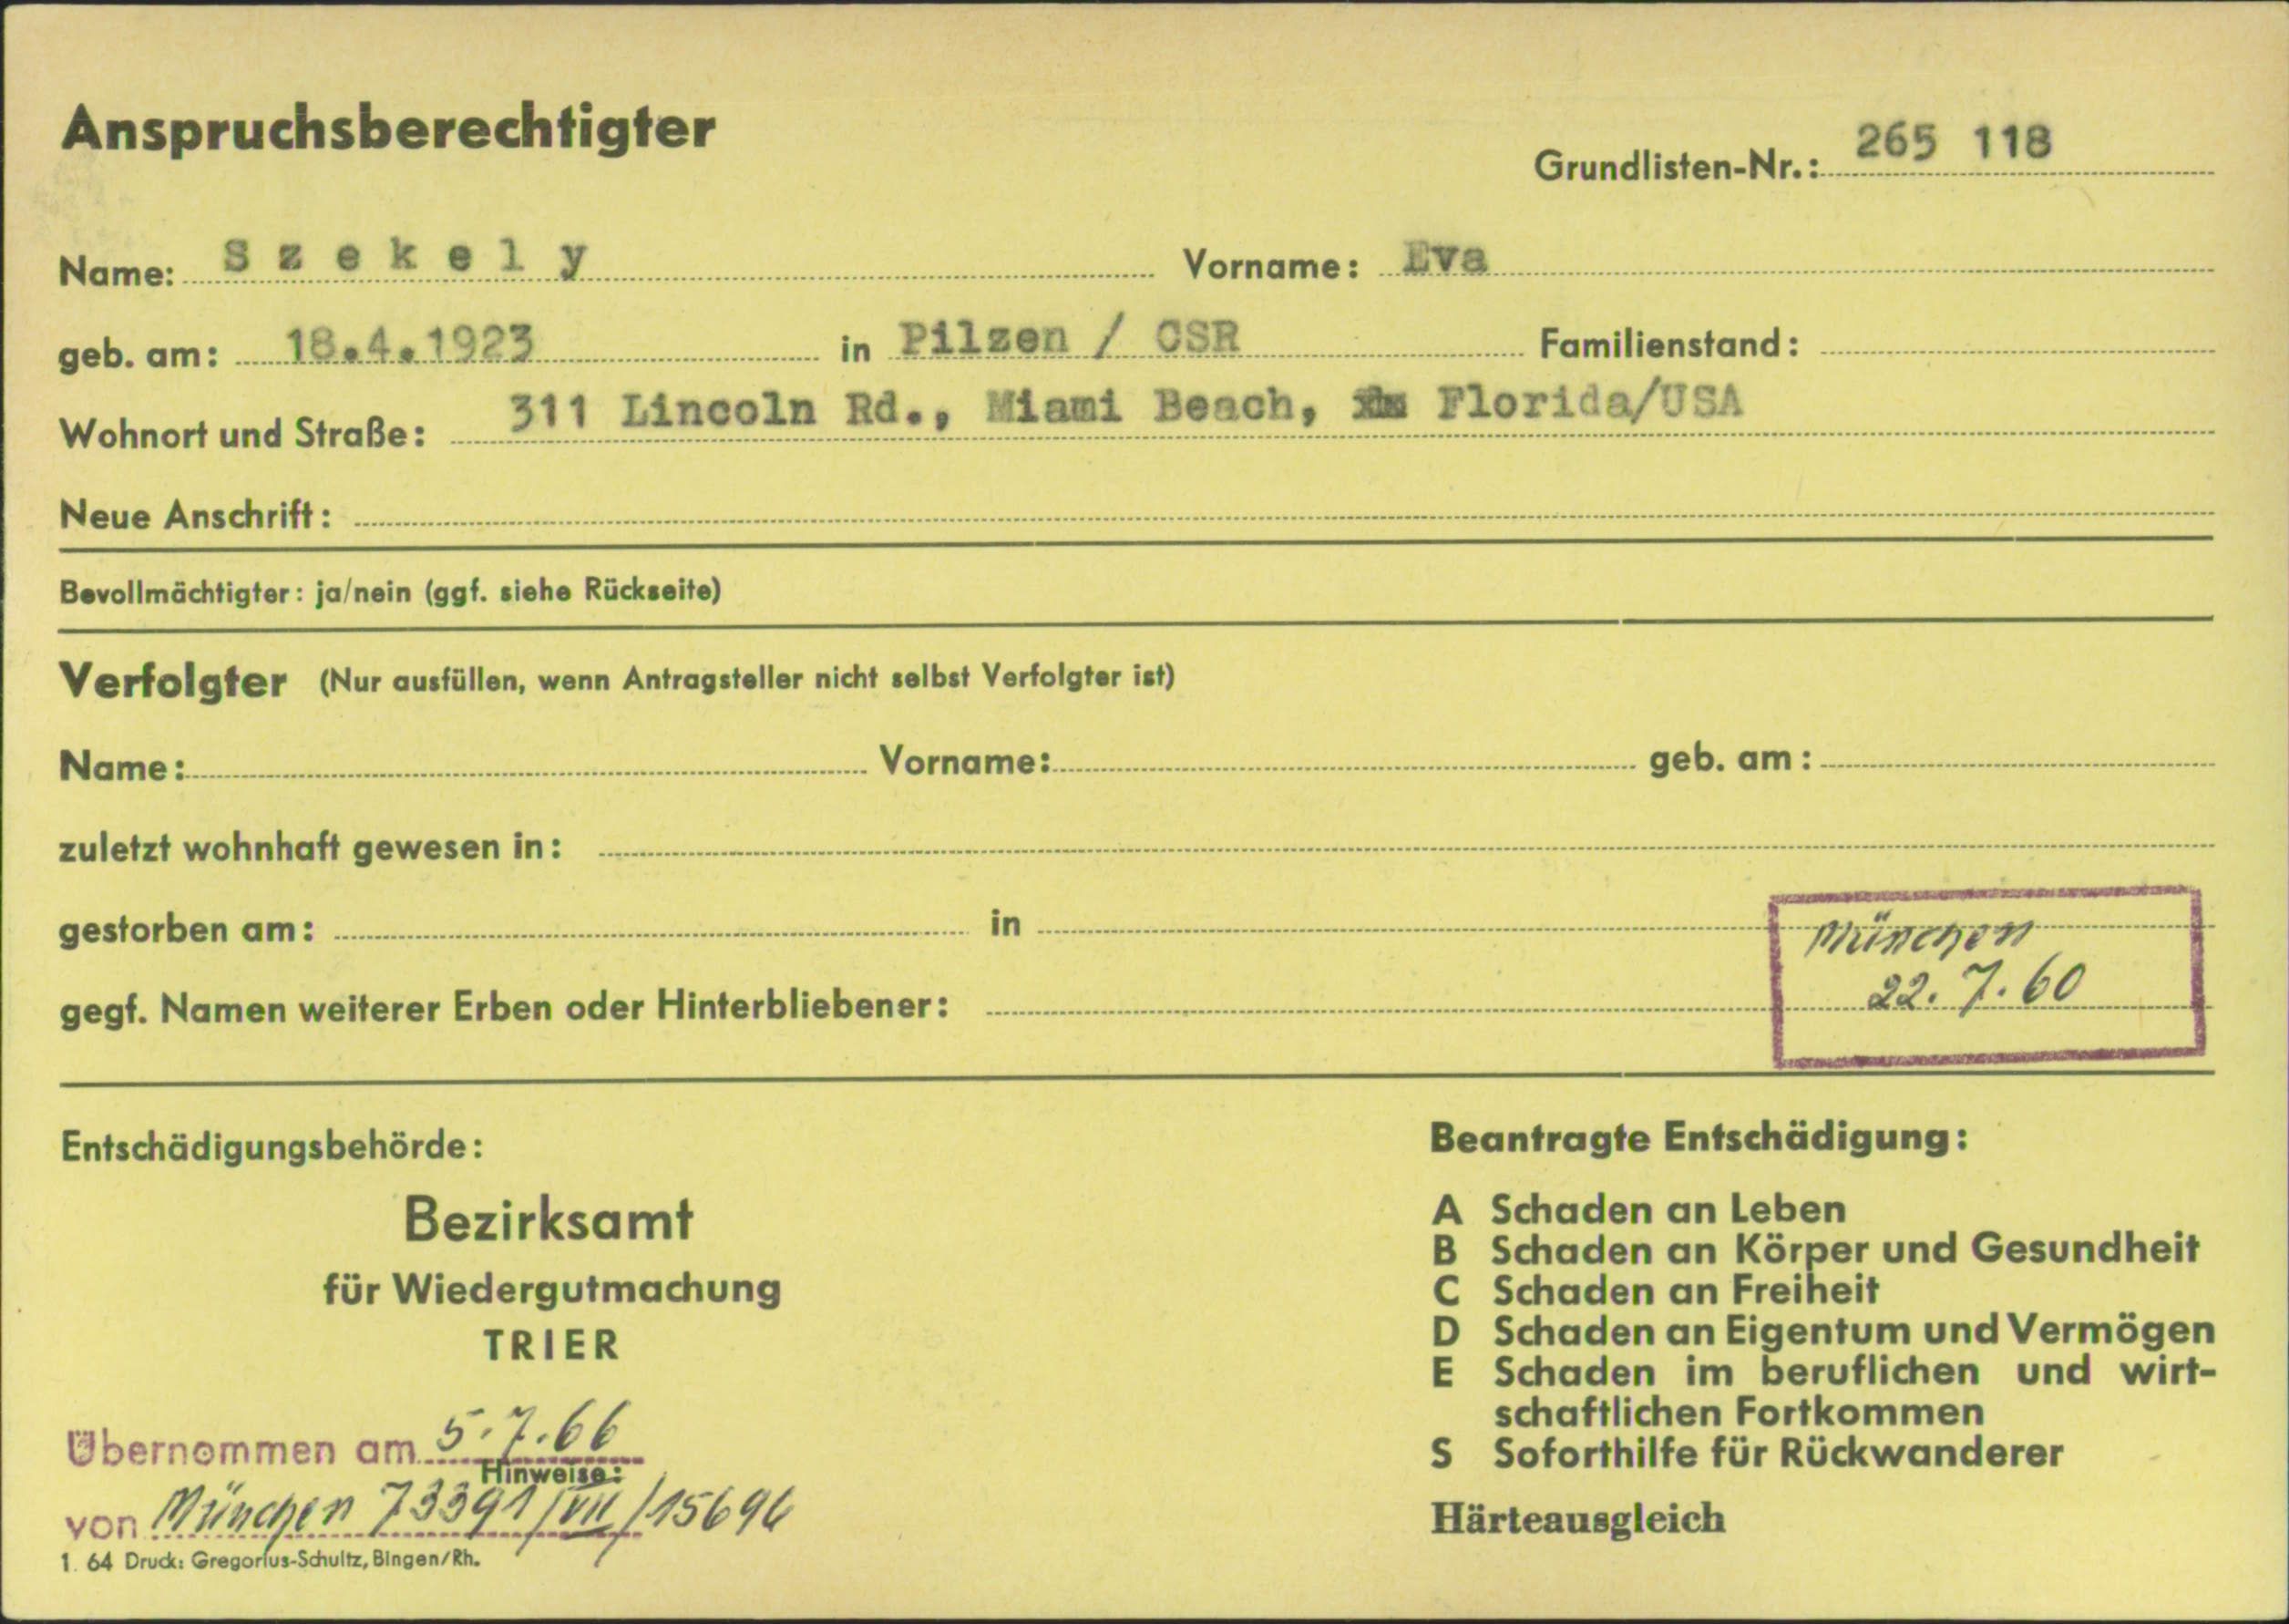 Anspruchsberechtigter
Grundlisten-Nr.: 265 118
Name: Szekely Vorname: Eva
geb. am: 18.4.1923 in Pilzen / CSR Familienstand:
Wohnort und Straße: 311 Lincoln Rd., Miami Beach, Florida/USA
Neue Anschrift:
Bevollmächtigter: ja/nein (ggf. siehe Rückseite)
Verfolgter (Nur ausfüllen, wenn Antragsteller nicht selbst Verfolgter ist)
Name: Vorname: geb. am:
zuletzt wohnhaft gewesen in:
gestorben am: in
gegf. Namen weiterer Erben oder Hinterbliebener:
München
22.7.60
Entschädigungsbehörde:
Bezirksamt
für Wiedergutmachung
TRIER
Übernommen am 5.7.66
Hinweise:
von München 73391/VII/15694
1. 64 Druck: Gregorius-Schultz, Bingen/Rh.
Beantragte Entschädigung:
A Schaden an Leben
B Schaden an Körper und Gesundheit
C Schaden an Freiheit
D Schaden an Eigentum und Vermögen
E Schaden im beruflichen und wirt-
schaftlichen Fortkommen
S Soforthilfe für Rückwanderer
Härteausgleich